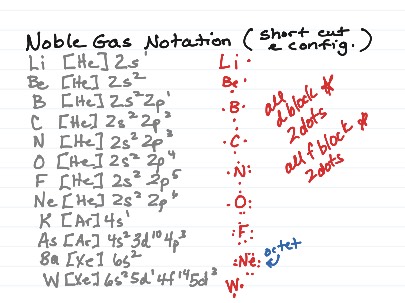 Noble Gas Notation (short cut e config.)
Li [He] 2s¹ Li·
Be [He] 2s² Be·
B [He] 2s² 2p¹ ·B·
C [He] 2s² 2p² ·C·
N [He] 2s² 2p³ ·N:
O [He] 2s² 2p⁴ ·O:
F [He] 2s² 2p⁵ :F:
Ne [He] 2s² 2p⁶ :Ne: octet
K [Ar] 4s¹
As [Ar] 4s² 3d¹⁰ 4p³
Ba [Xe] 6s²
W [Xe] 6s² 5d¹ 4f¹⁴ 5d³ W·
all d block * 2 dots
all f block * 2 dots